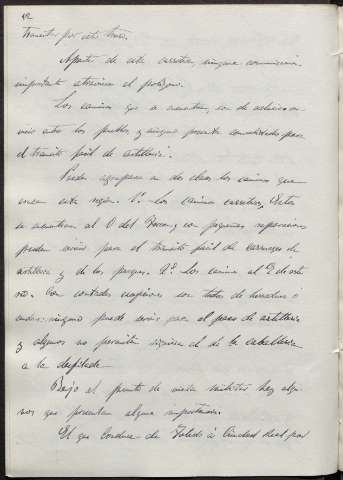 42
transitar por esta
Aparte de esta carretera, ninguna comunicacion
importante atraviesa el
Los caminos que se encuentran, son de
entre los pueblos y ninguno presenta comodidades para
el transito fácil de artilleria.
Pueden agruparse en dos clases los caminos que
cruzan esta region. 1º Los caminos carreteros, Estos
se encuentran al O del y con pequeñas reparaciones
pueden servir para el transito fácil de carruages de
artilleria y de los parques. 2º Los caminos al E de este
Con contadas son todos de herradura ó
ninguno puede servir para el paso de artilleria
y algunos no permiten siquiera el de la caballeria
a la desfilada.
Bajo el punto de vista militar hay algu-
nos que presentan alguna importancia.
El que conduce de Toledo á Ciudad Real por